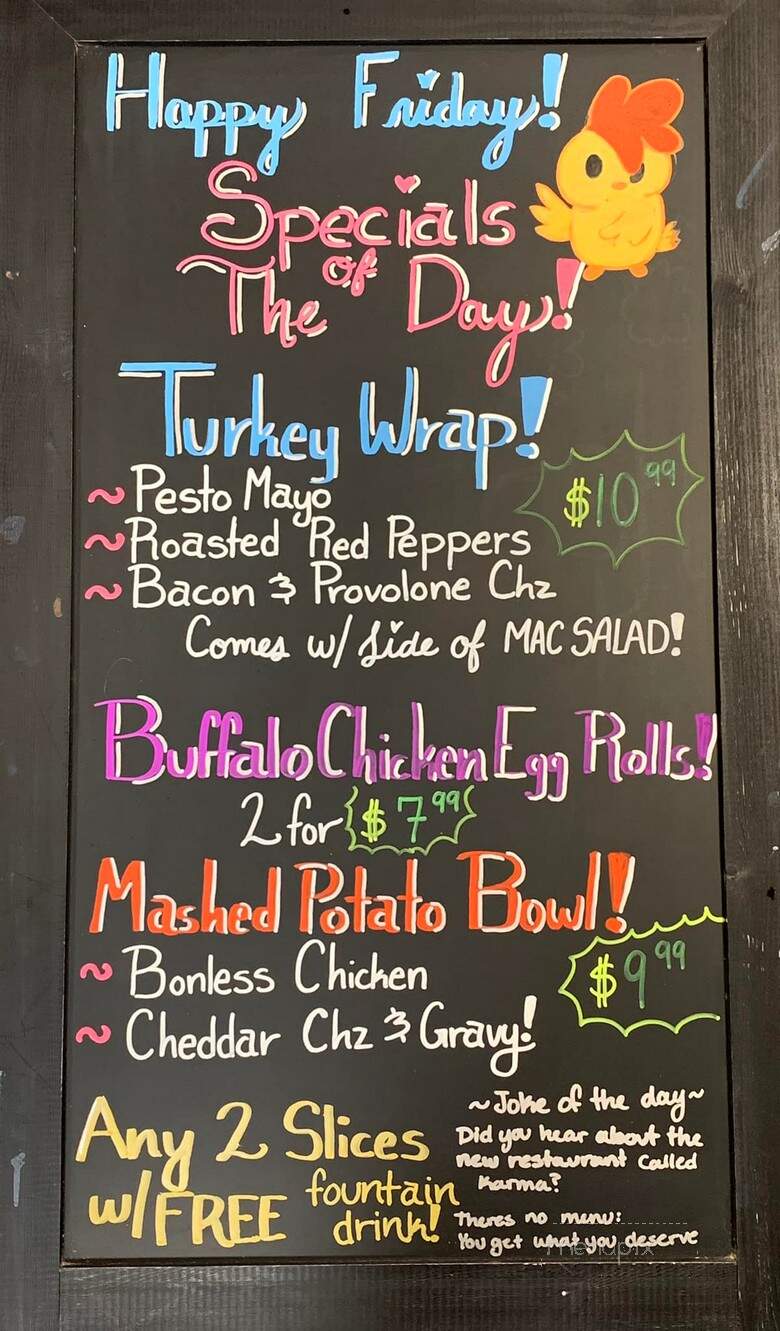 Happy Friday!
Specials
of
The Day!
Turkey Wrap!
~Pesto Mayo
$10.99
~Roasted Red Peppers
~Bacon & Provolone Chz
Comes w/ Side of MAC SALAD!
Buffalo Chicken Egg Rolls!
2 for $7.99
Mashed Potato Bowl!
~ Bonless Chicken
$9.99
~ Cheddar Chz & Gravy!
Any 2 Slices
w/FREE fountain
drink!
~Joke of the day~
Did you hear about the
new restaurant called
Karma?
Theres no menu:
You get what you deserve
menupix